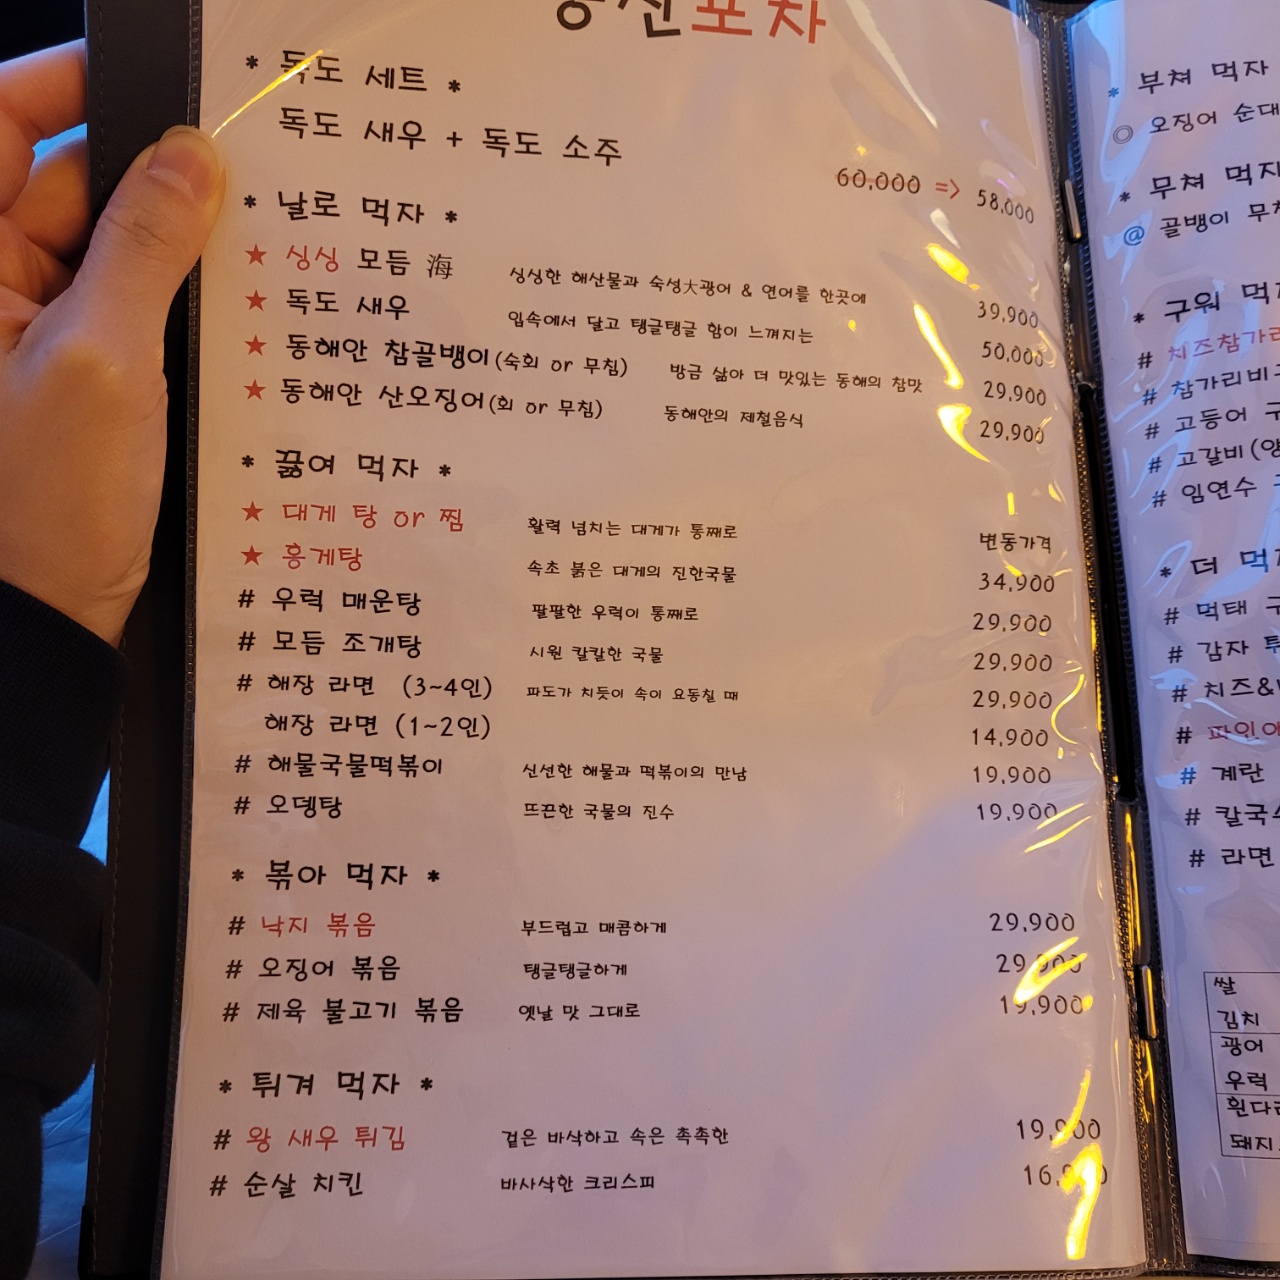 포차
* 독도 세트 *
독도 새우 + 독도 소주
60,000 => 58,000
* 날로 먹자 *
★ 싱싱 모듬 海 싱싱한 해산물과 숙성大광어 & 연어를 한곳에 39,900
★ 독도 새우 입속에서 달고 탱글탱글 함이 느껴지는 50,000
★ 동해안 참골뱅이(숙회 or 무침) 방금 삶아 더 맛있는 동해의 참맛 29,900
★ 동해안 산오징어(회 or 무침) 동해안의 제철음식 29,900
* 끓여 먹자 *
★ 대게 탕 or 찜 활력 넘치는 대게가 통째로 변동가격
★ 홍게탕 속초 붉은 대게의 진한국물 34,900
# 우럭 매운탕 팔팔한 우럭이 통째로 29,900
# 모듬 조개탕 시원 칼칼한 국물 29,900
# 해장 라면 (3~4인) 파도가 치듯이 속이 요동칠 때 29,900
해장 라면 (1~2인) 14,900
# 해물국물떡볶이 신선한 해물과 떡볶이의 만남 19,900
# 오뎅탕 뜨끈한 국물의 진수 19,900
* 볶아 먹자 *
# 낙지 볶음 부드럽고 매콤하게 29,900
# 오징어 볶음 탱글탱글하게 29,900
# 제육 불고기 볶음 옛날 맛 그대로 19,900
* 튀겨 먹자 *
# 왕 새우 튀김 겉은 바삭하고 속은 촉촉한 19,900
# 순살 치킨 바사삭한 크리스피
* 부쳐 먹자
◎ 오징어 순대
* 무쳐 먹자
@ 골뱅이
* 구워
#
# 참가리비
# 고등어
# 고갈비
# 임연수
* 더
# 먹태
# 감자
# 치즈&
#
# 계란
#
# 라면
쌀
김치
광어
우럭
돼지